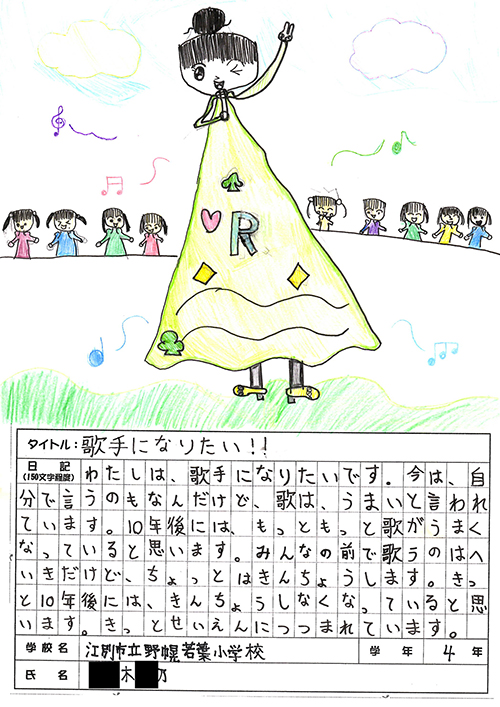 R
タイトル:歌手になりたい!!
日記
(150文字程度)
わたしは、歌手になりたいです。今は、自
分で言うのもなんだけど、歌は、うまいと言われ
ています。10年後には、もっともっと歌がうまく
なっていると思います。みんなの前で歌うのはへ
いきだけど、ちょっとはきんちょうします。きっ
と10年後には、きんちょうしなくなっていると思
います。きっとせいえんにつつまれています。
学校名 江別市立野幌若葉小学校 学年 4年
氏名 木 乃